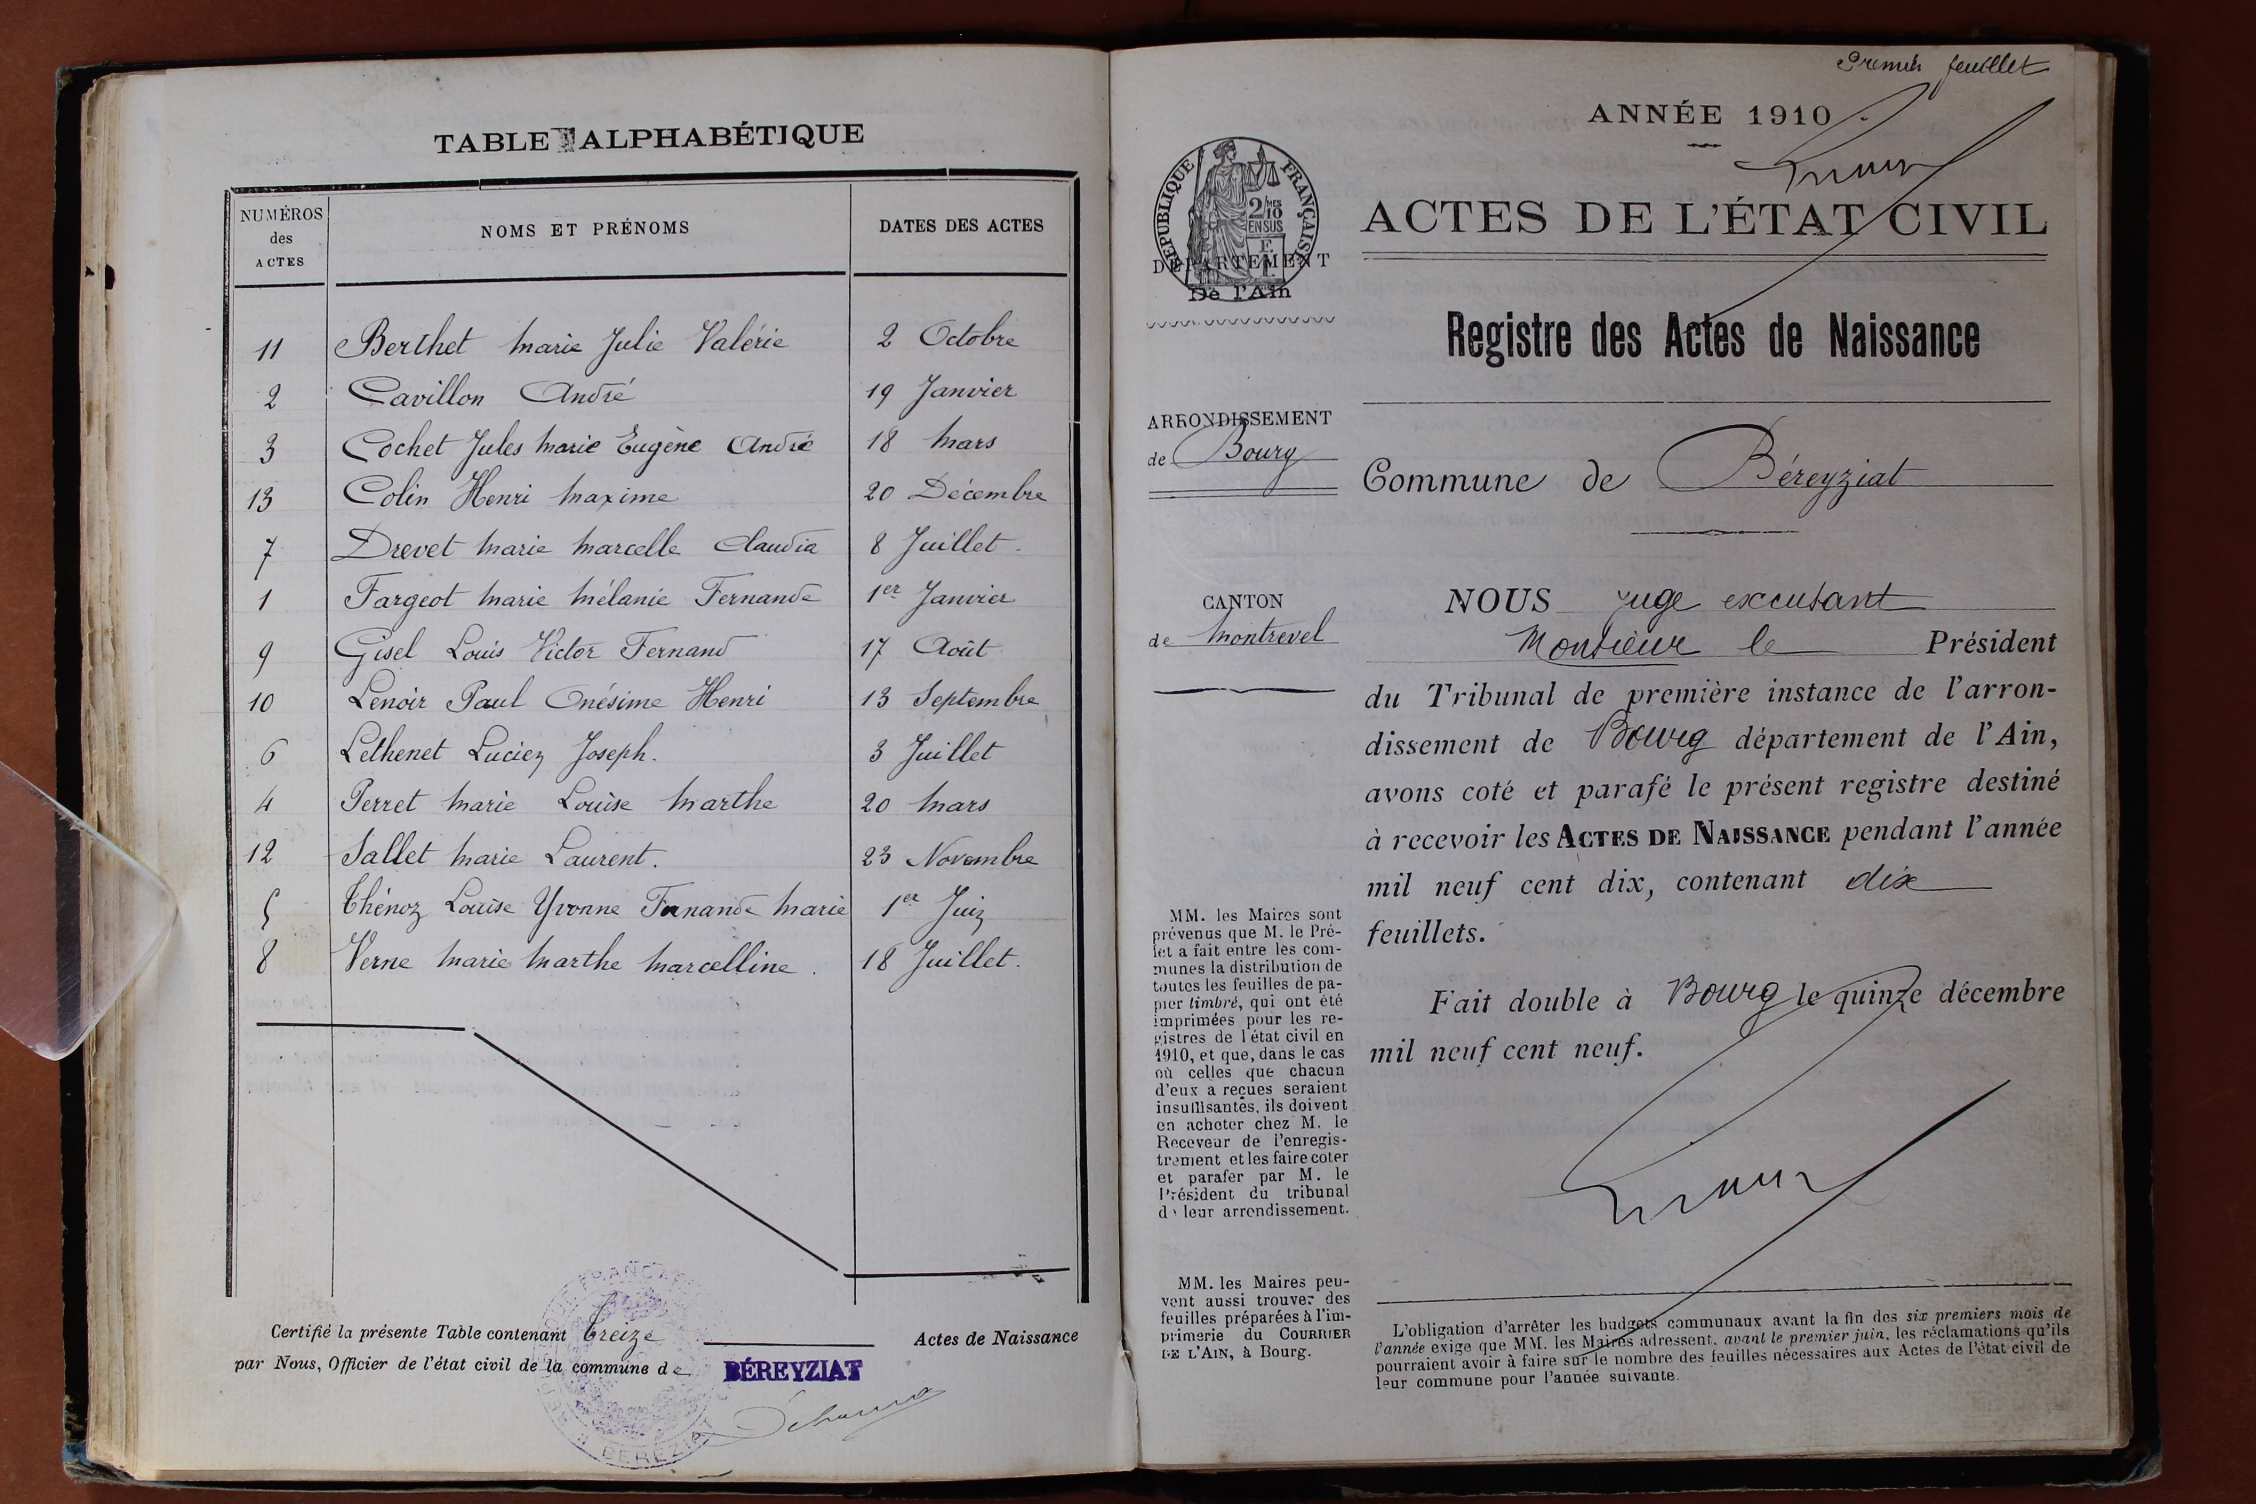 TABLE ALPHABÉTIQUE
NUMÉROS
des
ACTES
NOMS ET PRÉNOMS
DATES DES ACTES
11 Berthet Marie Julie Valérie 2 Octobre
2 Cavillon André 19 Janvier
3 Cochet Jules Marie Eugène André 18 Mars
13 Colin Henri Maxime 20 Décembre
7 Drevet Marie Marcelle Claudia 8 Juillet.
1 Fargeot Marie Mélanie Fernande 1er Janvier
9 Gisel Louis Victor Fernand 17 Août
10 Lenoir Paul Onésime Henri 13 Septembre
6 Lethenet Lucien Joseph. 3 Juillet
4 Perret Marie Louise Marthe 20 Mars
12 Sallet Marie Laurent. 23 Novembre
5 Thénoz Louise Yvonne Fernande Marie 1er Juin
8 Verne Marie Marthe Marcelline. 18 Juillet.
Certifié la présente Table contenant treize Actes de Naissance
par Nous, Officier de l'état civil de la commune de BÉREYZIAT
Premier feuillet
ANNÉE 1910
ACTES DE L'ÉTAT CIVIL
RÉPUBLIQUE FRANÇAISE
2/10
EN SUS
DÉPARTEMENT
De l'Ain
Registre des Actes de Naissance
ARRONDISSEMENT
de Bourg
Commune de Béreyziat
CANTON
de Montrevel
NOUS juge excusant
Monsieur le Président
du Tribunal de première instance de l'arron-
dissement de Bourg département de l'Ain,
avons coté et parafé le présent registre destiné
à recevoir les ACTES DE NAISSANCE pendant l'année
mil neuf cent dix, contenant dix
feuillets.
Fait double à Bourg le quinze décembre
mil neuf cent neuf.
MM. les Maires sont
prévenus que M. le Pré-
fet a fait entre les com-
munes la distribution de
toutes les feuilles de pa-
pier timbré, qui ont été
imprimées pour les re-
gistres de l'état civil en
1910, et que, dans le cas
où celles que chacun
d'eux a reçues seraient
insuffisantes, ils doivent
en acheter chez M. le
Receveur de l'enregis-
trement et les faire coter
et parafer par M. le
Président du tribunal
de leur arrondissement.
MM. les Maires peu-
vent aussi trouver des
feuilles préparées à l'im-
primerie du COURRIER
DE L'AIN, à Bourg.
L'obligation d'arrêter les budgets communaux avant la fin des six premiers mois de
l'année exige que MM. les Maires adressent, avant le premier juin, les réclamations qu'ils
pourraient avoir à faire sur le nombre des feuilles nécessaires aux Actes de l'état civil de
leur commune pour l'année suivante.